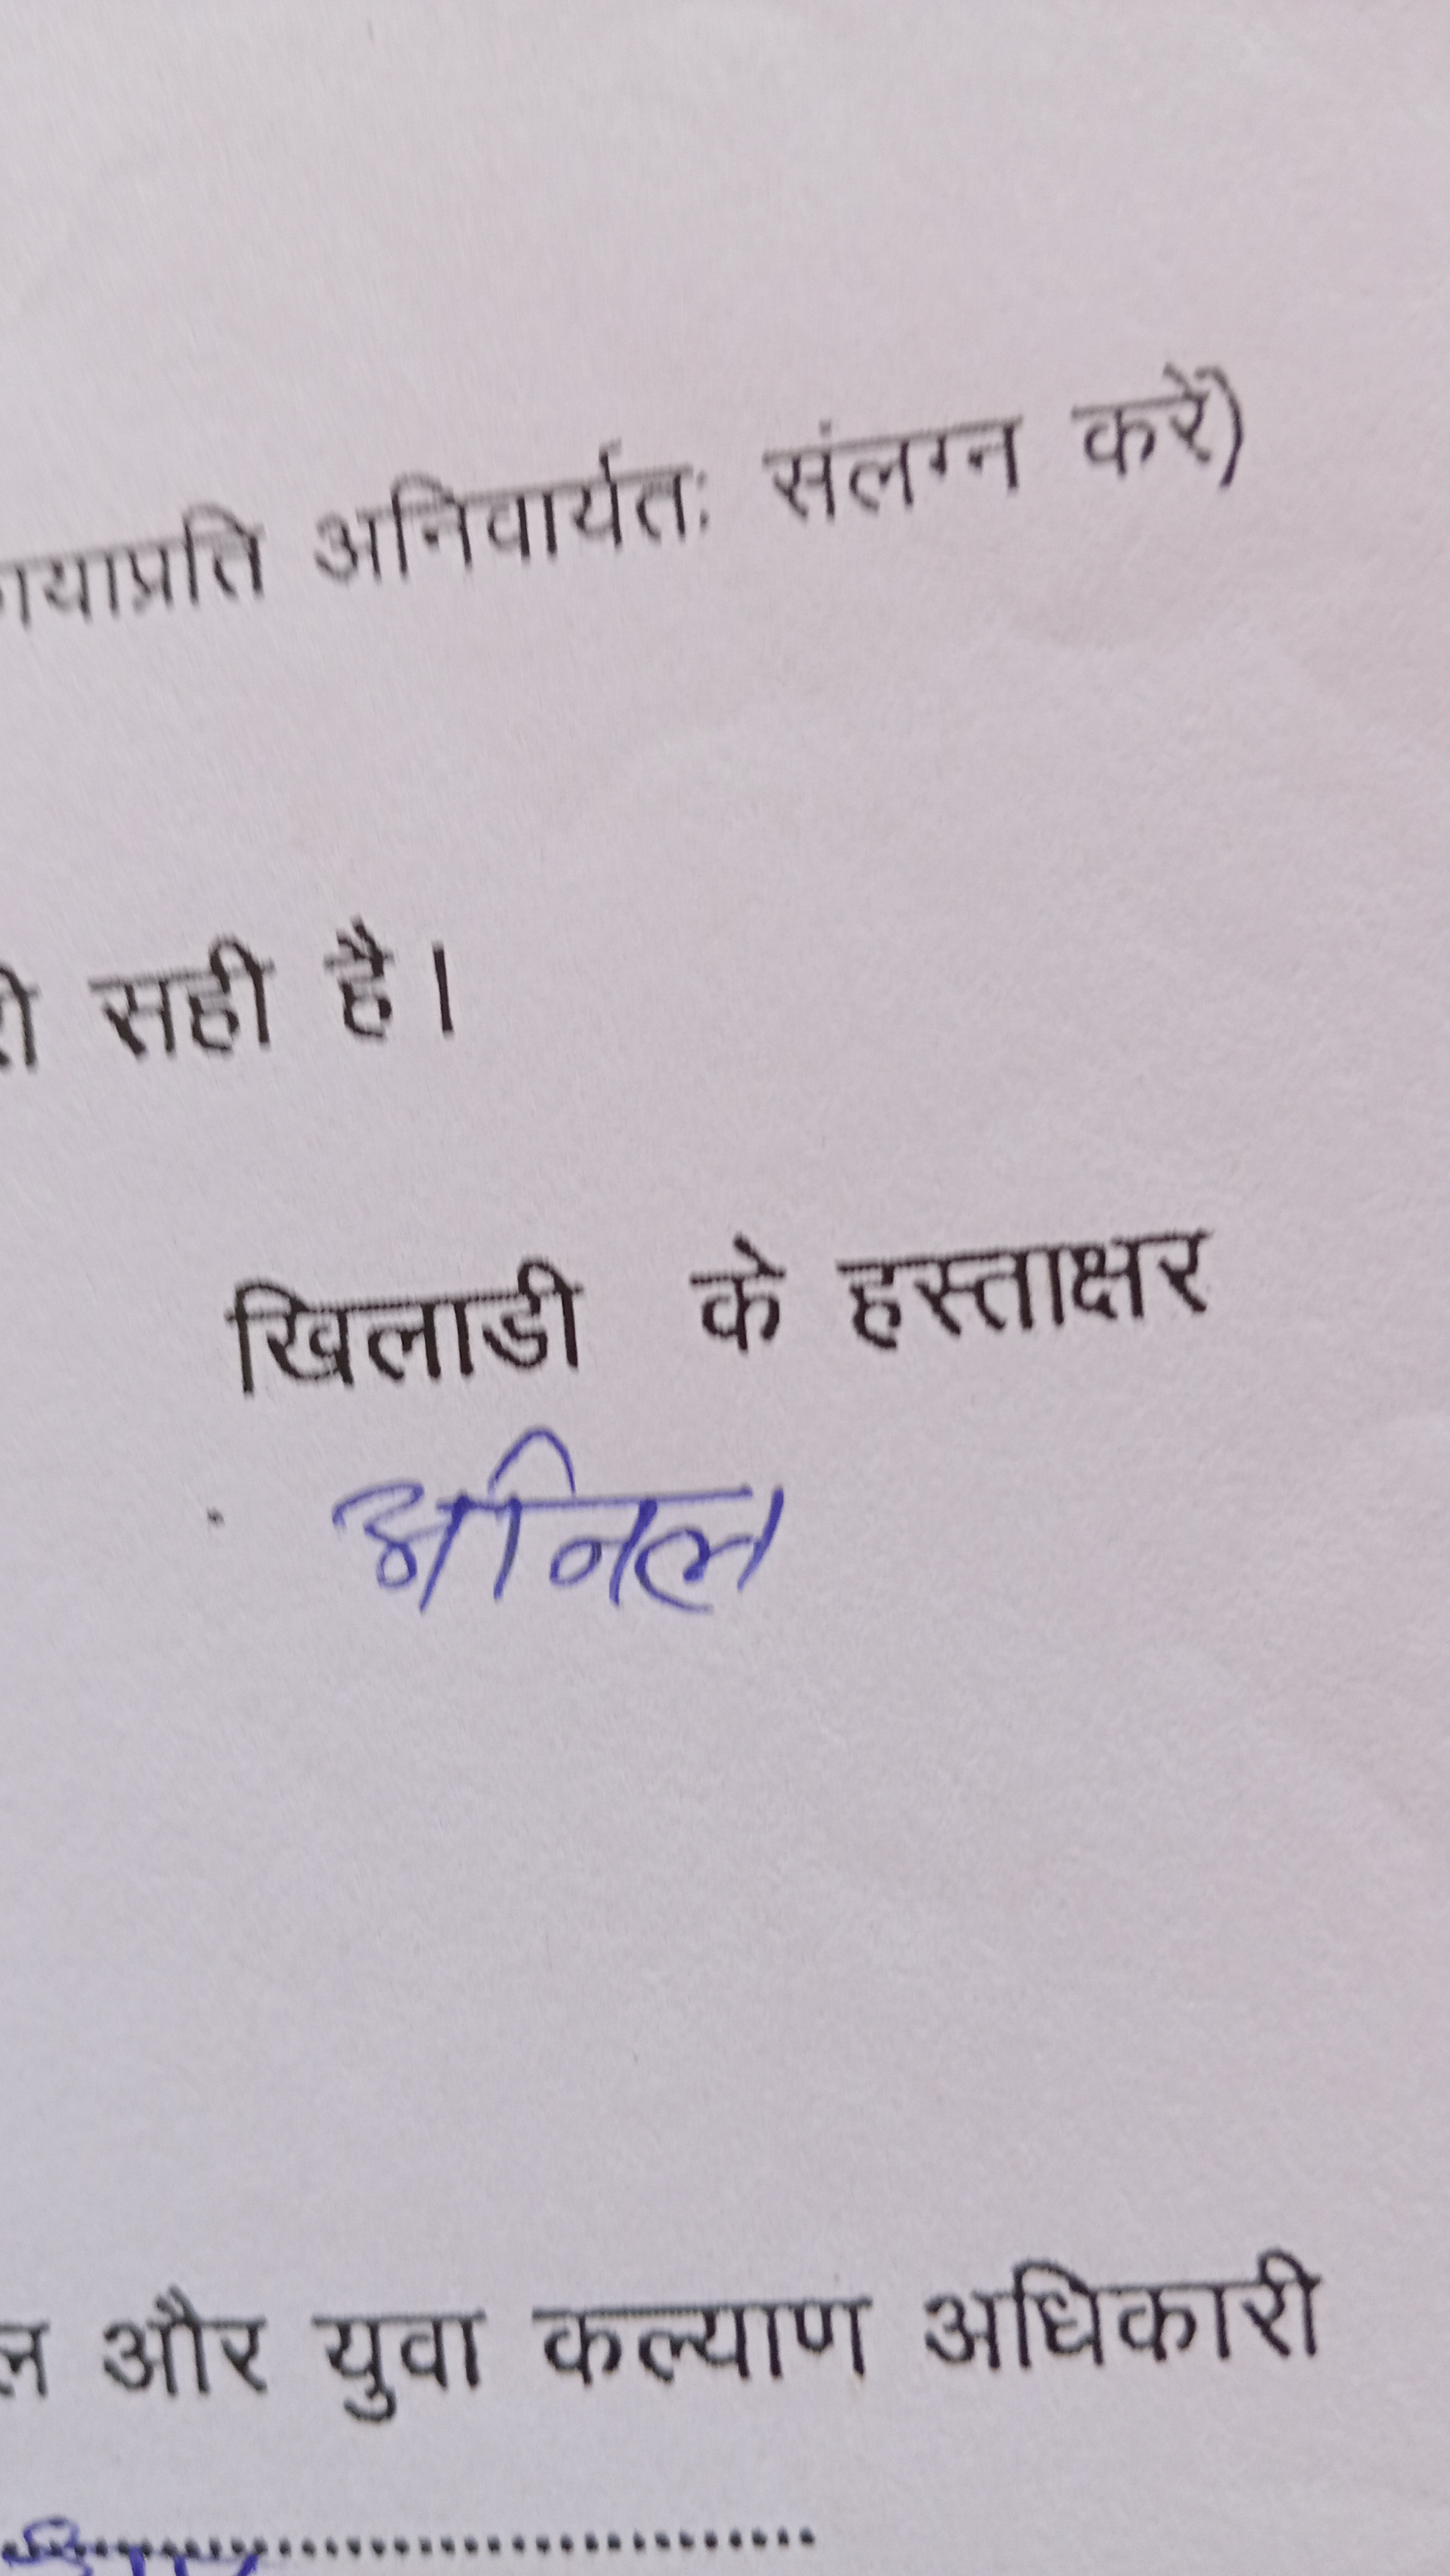 अनिवार्यतः संलग्न करें)
सही है।
खिलाडी के हस्ताक्षर
अनिल
और युवा कल्याण अधिकारी